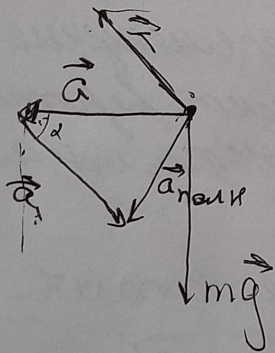 T⃗
a⃗
α
a⃗полн
mg⃗